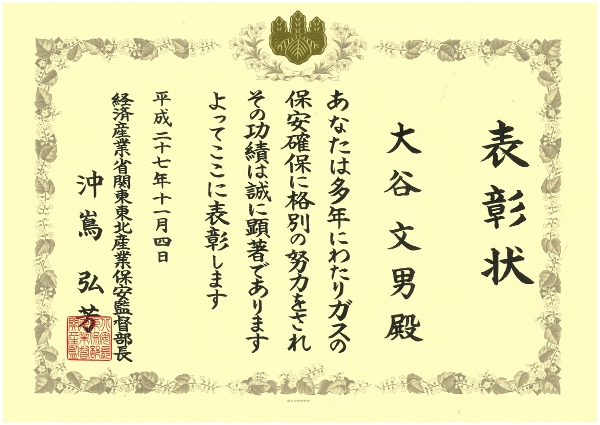 表彰状
大谷文男殿
あなたは多年にわたりガスの
保安確保に格別の努力をされ
その功績は誠に顕著であります
よってここに表彰します
平成二十七年十一月四日
経済産業省関東東北産業保安監督部長
沖嶌弘芳